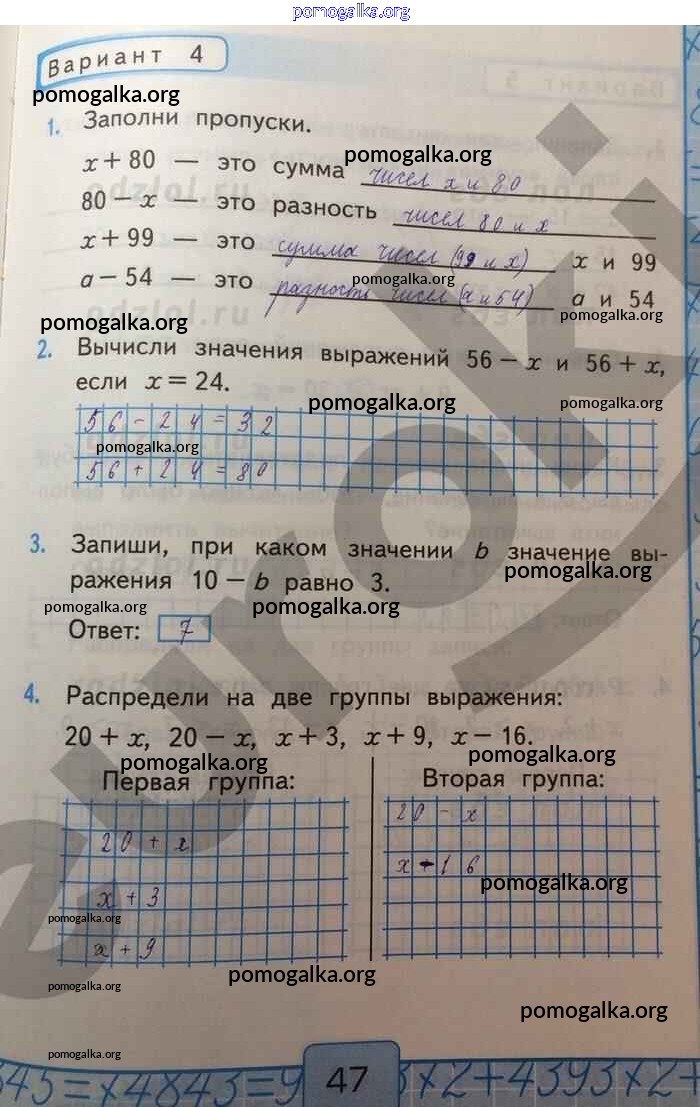 pomogalka.org
Вариант 4
pomogalka.org
1. Заполни пропуски.
x + 80 — это сумма чисел x и 80
pomogalka.org
80 − x — это разность чисел 80 и x
x + 99 — это сумма чисел (99 и x) x и 99
pomogalka.org
a − 54 — это разность чисел (a и 54) a и 54
pomogalka.org pomogalka.org
2. Вычисли значения выражений 56 − x и 56 + x,
если x = 24.
pomogalka.org pomogalka.org
56 − 24 = 32
pomogalka.org
56 + 24 = 80
3. Запиши, при каком значении b значение вы-
ражения 10 − b равно 3.
pomogalka.org
pomogalka.org pomogalka.org
Ответ: 7
4. Распредели на две группы выражения:
20 + x, 20 − x, x + 3, x + 9, x − 16.
pomogalka.org pomogalka.org
Первая группа: Вторая группа:
20 − x
20 + x
x − 16
pomogalka.org
x + 3
pomogalka.org
x + 9
pomogalka.org
pomogalka.org
pomogalka.org
pomogalka.org
345=x4843=9 47 3x2+4393x2+